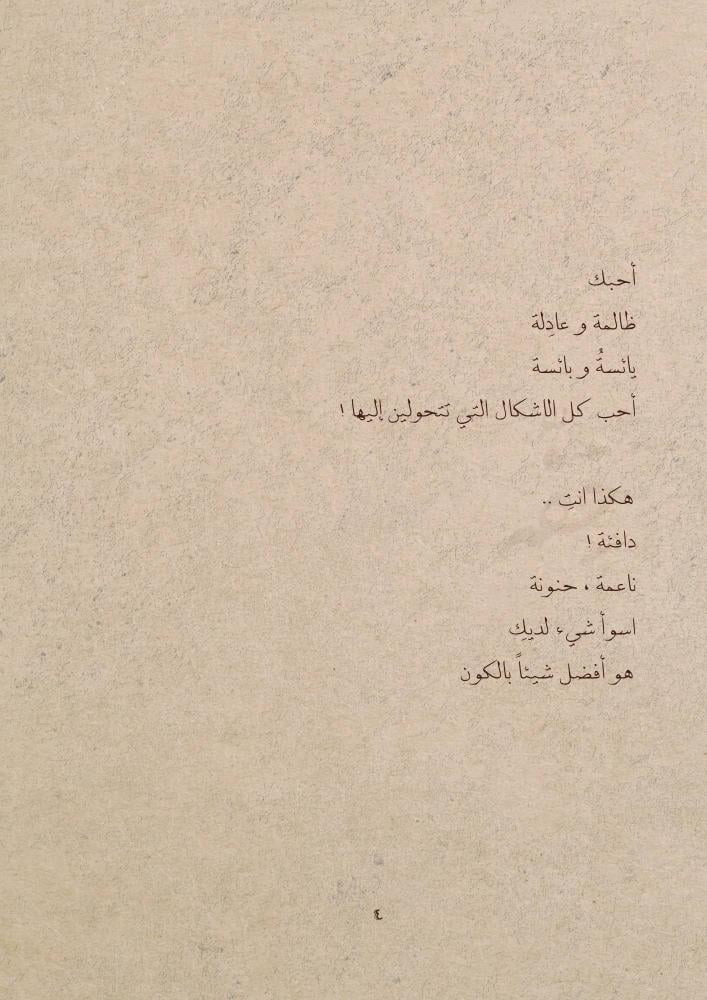 أحبك
ظالمة و عادِلة
يائسةُ و بائسة
أحب كل الاشكال التي تتحولين إليها !
هكذا انتِ ..
دافئة !
ناعمة ، حنونة
اسوأ شيء لديكِ
هو أفضل شيئاً بالكون
٤